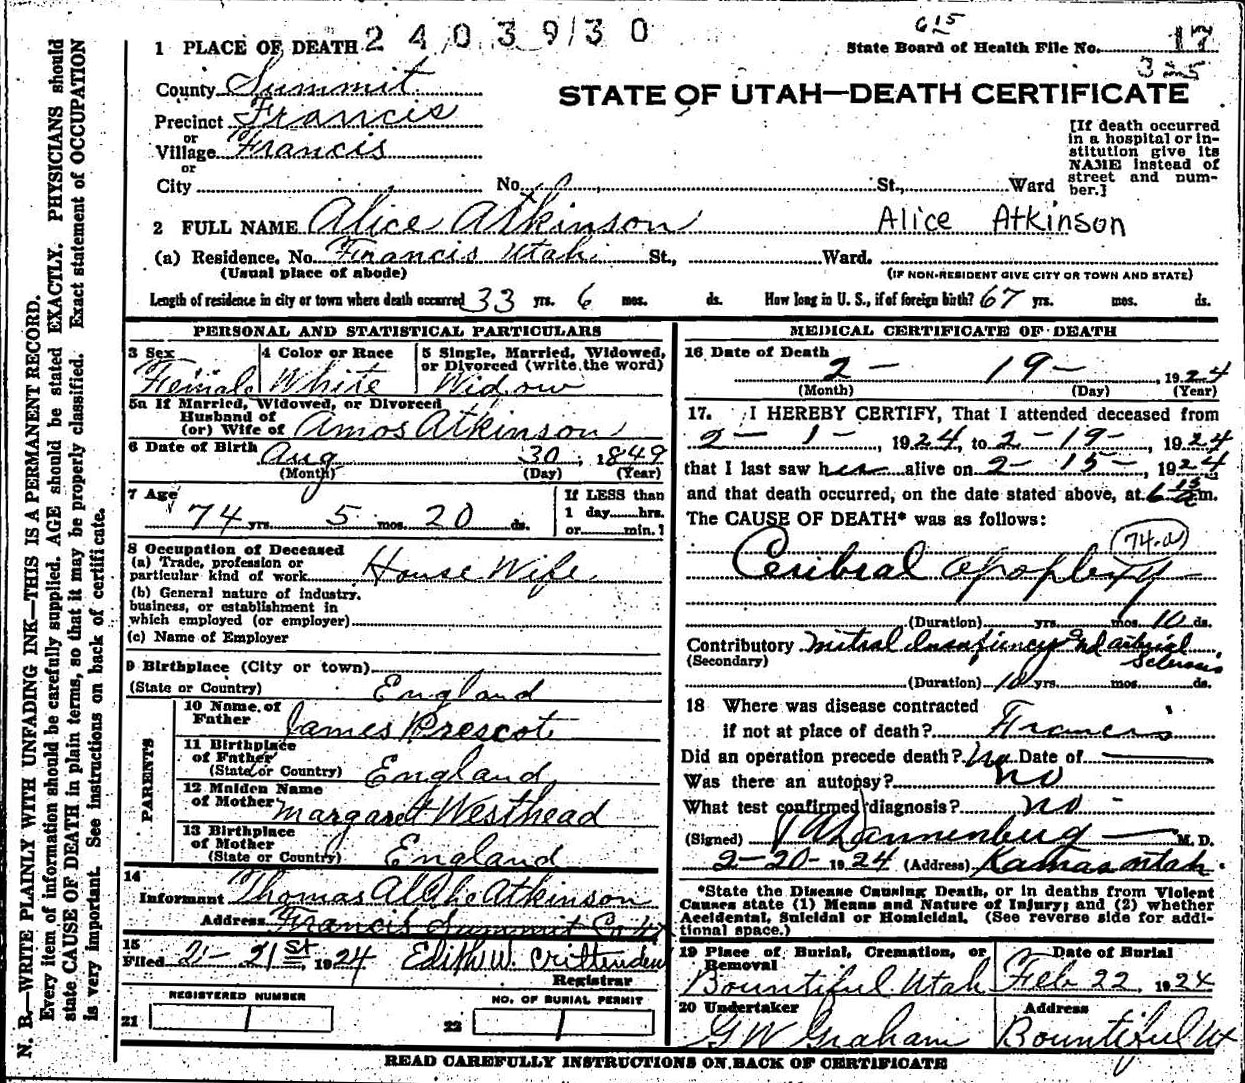 2403930
615
1 PLACE OF DEATH
State Board of Health File No. 17
325
County Summit
STATE OF UTAH—DEATH CERTIFICATE
Precinct Francis
or
Village Francis
or
City No. St., Ward
[If death occurred
in a hospital or in-
stitution give its
NAME instead of
street and num-
ber.]
2 FULL NAME Alice Atkinson Alice Atkinson
(a) Residence, No. Francis Utah. St., Ward.
(Usual place of abode) (IF NON-RESIDENT GIVE CITY OR TOWN AND STATE)
Length of residence in city or town where death occurred 33 yrs. 6 mos. ds. How long in U. S., if of foreign birth? 67 yrs. mos. ds.
PERSONAL AND STATISTICAL PARTICULARS
3 Sex
Female
4 Color or Race
White
5 Single, Married, Widowed,
or Divorced (write the word)
Widow
5a If Married, Widowed, or Divorced
Husband of
(or) Wife of Amos Atkinson
6 Date of Birth Aug 30, 1849
(Month) (Day) (Year)
7 Age
74 yrs. 5 mos. 20 ds.
If LESS than
1 day....hrs.
or....min.]
8 Occupation of Deceased
(a) Trade, profession or
particular kind of work House Wife
(b) General nature of industry,
business, or establishment in
which employed (or employer)
(c) Name of Employer
9 Birthplace (City or town)
(State or Country) England
PARENTS
10 Name of
Father James Prescot
11 Birthplace
of Father
(State or Country) England
12 Maiden Name
of Mother Margaret Westhead
13 Birthplace
of Mother
(State or Country) England
14
Informant Thomas Atkinson
Address Francis Summit
15
Filed 2-21st, 1924 Edith W. Crittenden
Registrar
REGISTERED NUMBER
21
NO. OF BURIAL PERMIT
22
MEDICAL CERTIFICATE OF DEATH
16 Date of Death
2- 19- , 1924
(Month) (Day) (Year)
17. I HEREBY CERTIFY, That I attended deceased from
2-1-, 1924, to 2-19-, 1924
that I last saw her alive on 2-15-, 1924
and that death occurred, on the date stated above, at 6 15 a m.
The CAUSE OF DEATH* was as follows:
74-a
Ceribral apoplexy
(Duration) yrs. mos. 10 ds.
Contributory mitral Insufiency and artirial
(Secondary) Sclerosis
(Duration) 10 yrs. mos. ds.
18 Where was disease contracted
if not at place of death? Francis
Did an operation precede death? No Date of
Was there an autopsy? no
What test confirmed diagnosis? no -
(Signed) Dannenberg M. D.
2-20-1924 (Address) Kamas Utah.
*State the Disease Causing Death, or in deaths from Violent
Causes state (1) Means and Nature of Injury; and (2) whether
Accidental, Suicidal or Homicidal. (See reverse side for addi-
tional space.)
19 Place of Burial, Cremation, or
Removal
Bountiful Utah
Date of Burial
Feb 22, 1924
20 Undertaker
G W Graham
Address
Bountiful Ut
READ CAREFULLY INSTRUCTIONS ON BACK OF CERTIFICATE
N. B.—WRITE PLAINLY WITH UNFADING INK—THIS IS A PERMANENT RECORD.
Every item of information should be carefully supplied. AGE should be stated EXACTLY. PHYSICIANS should
state CAUSE OF DEATH in plain terms, so that it may be properly classified. Exact statement of OCCUPATION
is very important. See instructions on back of certificate.